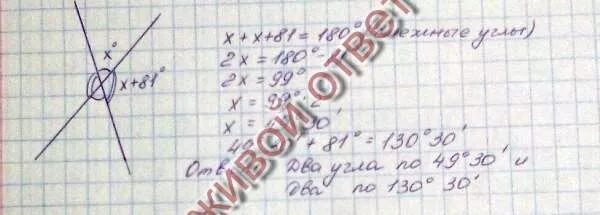 x°
x+81°
x+x+81=180° (смежные углы)
2x=180°-
2x=99°
x=99°:2
x= 30'
+81°=130°30'
Два угла по 49°30' и
два по 130°30'
ЖИВОЙ ОТВЕТ